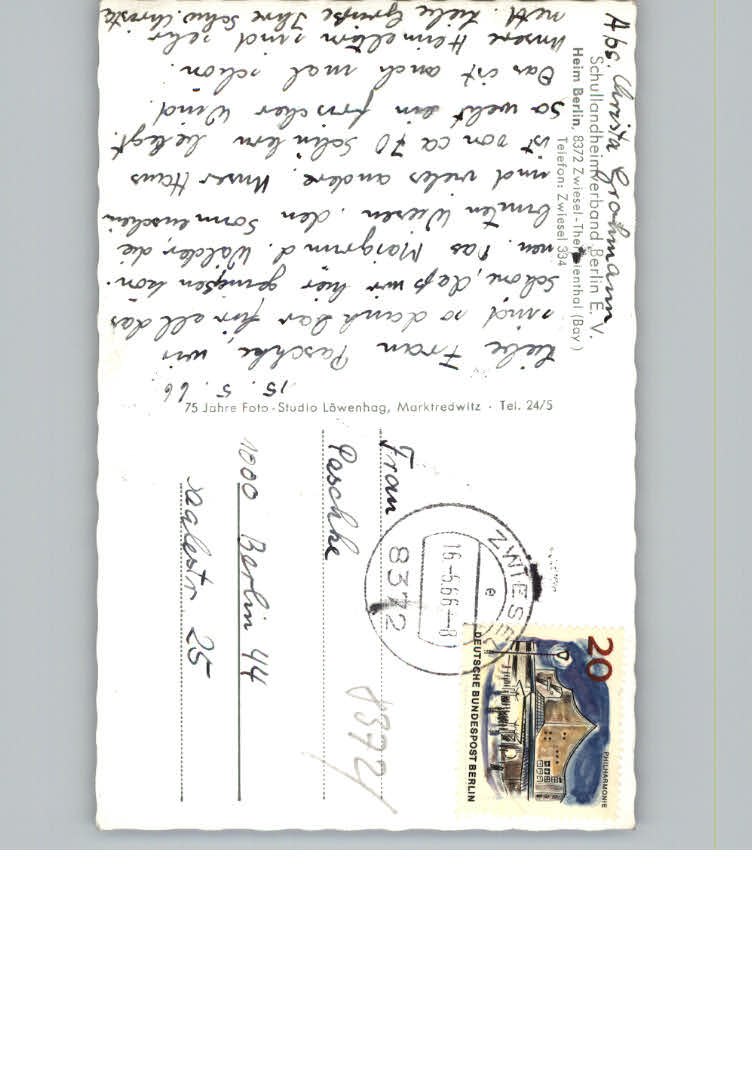 Abs. Christa Grohmann
Schullandheimverband Berlin E. V.
Heim Berlin, 8372 Zwiesel-Theresienthal (Bay)
Telefon: Zwiesel 334
15. 5. 66
Liebe Frau Paschke, wir
sind so dankbar für all das
Schöne, daß wir hier genießen kön-
nen. Das Maigrün d. Wälder, die
bunten Wiesen, den Sonnenschein
und vieles andere. Unser Haus
ist von ca 70 Schülern belegt.
So weht ein frischer Wind.
Das ist auch mal schön.
Unsere Heimeltern sind sehr
nett. Liebe Grüße Ihre Schw. Christa
75 Jahre Foto-Studio Löwenhag, Marktredwitz · Tel. 24/5
Frau
Paschke
1000 Berlin 44
Saalestr 25
8372
ZWIESEL
e
16.-5.66.-8
8372
20
PHILHARMONIE
DEUTSCHE BUNDESPOST BERLIN